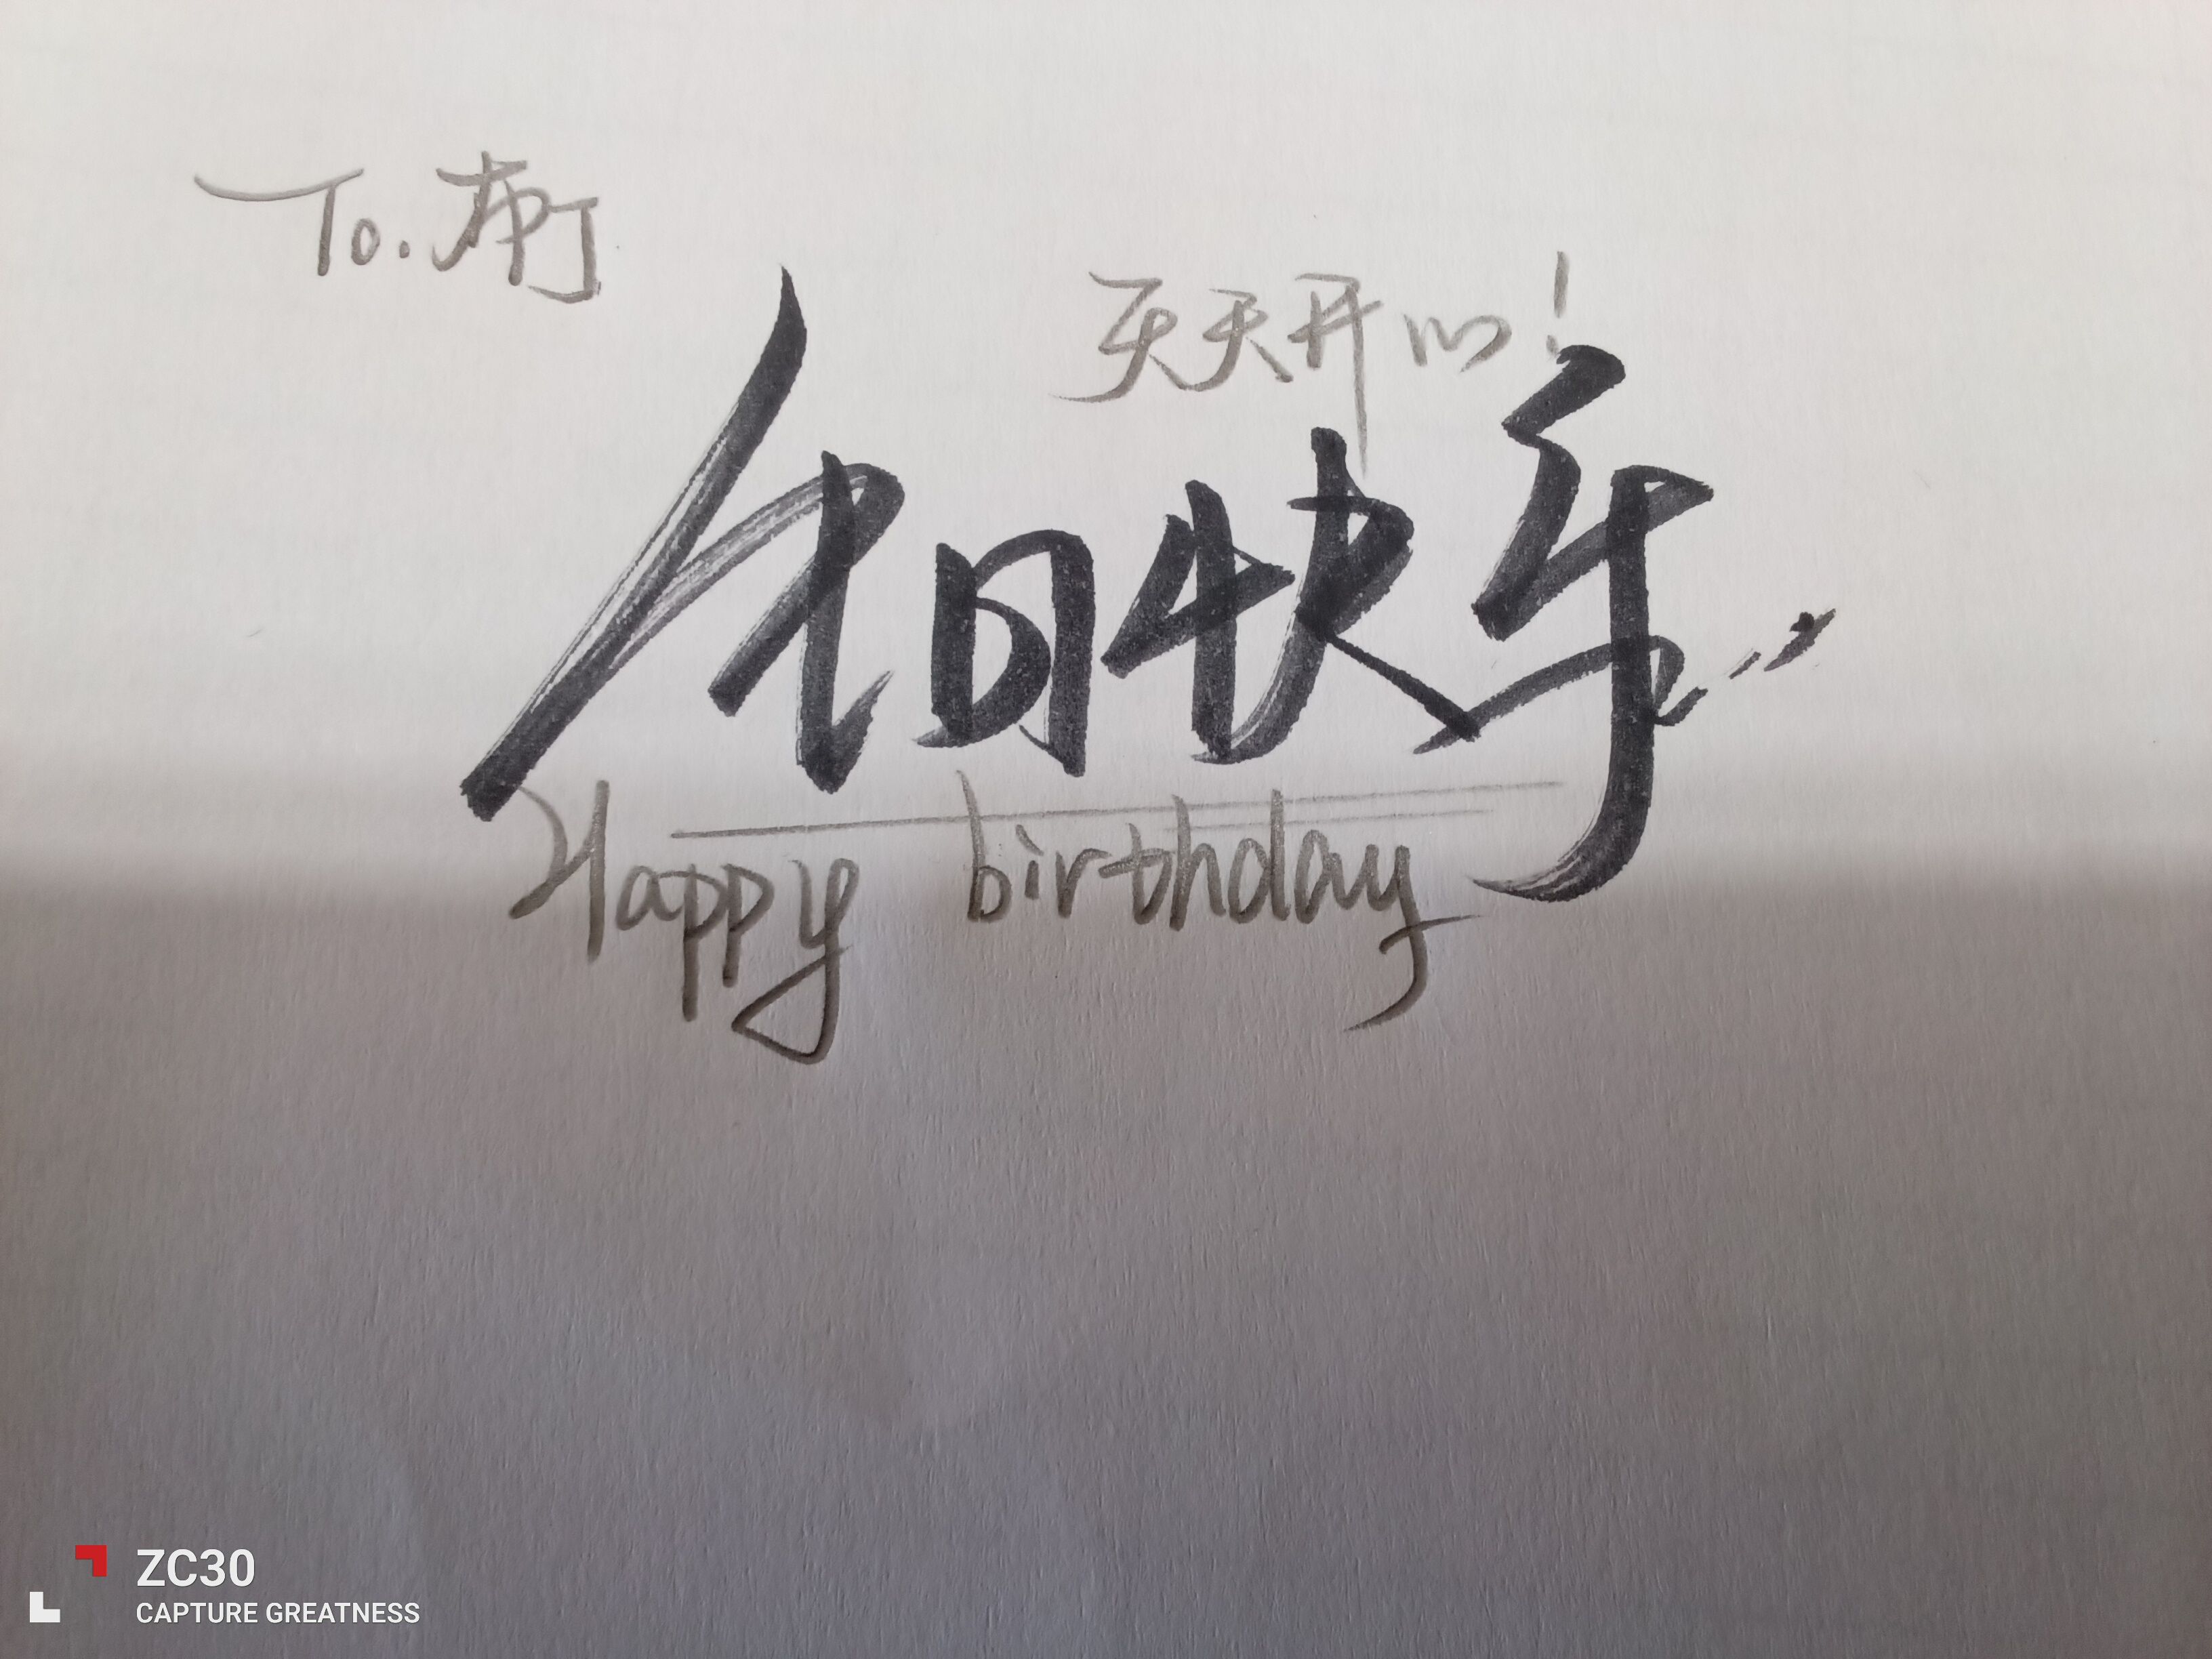 To.布丁
天天开心!
生日快乐
Happy birthday
ZC30
CAPTURE GREATNESS